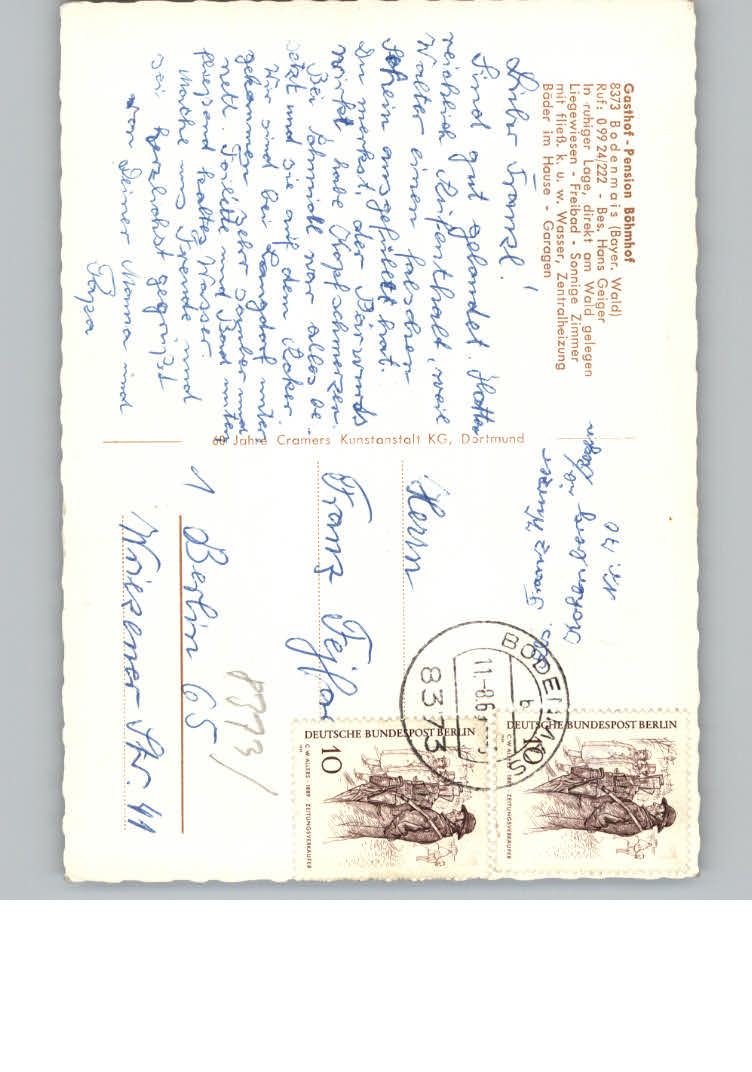 Gasthof - Pension Böhmhof
8373 Bodenmais (Bayer. Wald)
Ruf: 0 99 24/222 - Bes. Hans Geiger
In ruhiger Lage, direkt am Wald gelegen
Liegewiesen - Freibad - Sonnige Zimmer
mit fließ. k. u. w. Wasser, Zentralheizung
Bäder im Hause - Garagen
Lieber Franzl!
Sind gut gelandet. Hatten
reichlich Aufenthalt, weil
Walter einen falschen
Schein ausgefüllt hat.
Du merkst, der Bärwurds
wirkt habe Kopfschmerzen.
Bei Schmidt war alles be-
setzt und sie auf dem
Wir sind bei Langdorf unter
gekommen sehr sauber und
nett. Toilette und Bad unten
fliesend kaltes Wasser
Mache uns Freude und
sei herzlichst gegrüßt
von Deiner Mama und
Papa
60 Jahre Cramers Kunstanstalt KG, Dortmund
Franz
Nr. 70
Herrn
Franz
1 Berlin 65
Wriezener Str. 41
8373/
BODENMAIS
11-8.6
b
8373
DEUTSCHE BUNDESPOST BERLIN
10
C.W. ALLERS · 1889 ZEITUNGSVERKÄUFER
DEUTSCHE BUNDESPOST BERLIN
10
C.W. ALLERS · 1889 ZEITUNGSVERKÄUFER